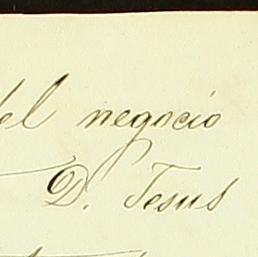 del negocio
D. Jesus